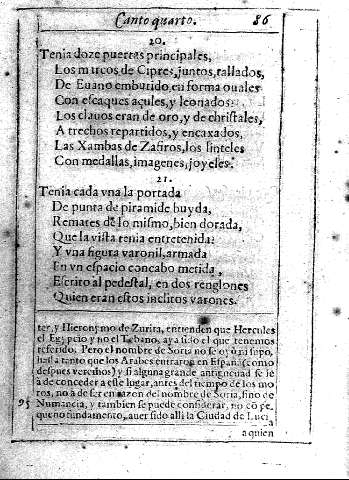 Canto quarto. 86
20.
Tenia doze puertas principales,
Los marcos de Cipres, juntos, tallados,
De Euano embutido, en forma ouales
Con escaques açules, y leonados:
Los clauos eran de oro, y de christales,
A trechos repartidos, y encaxados,
Las Xambas de Zafiros, los linteles
Con medallas, imagenes, joyeles.
21.
Tenia cada vna la portada
De punta de piramide buyda,
Remates de lo mismo, bien dorada,
Que la vista tenia entretenida:
Y vna figura varonil, armada
En vn espacio concabo metida,
Escrito al pedestal, en dos renglones
Quien eran estos inclitos varones.
ter, y Hieronymo de Zurita, entienden que Hercules
el Egypcio y no el Tebano, aya sido el que tenemos
referido. Pero el nombre de Soria no se oyò ni supo,
hasta tanto que los Arabes entraron en España (como
despues veremos) y si alguna grande antiguedad se le
à de conceder a este lugar, antes del tiempo de los mo
ros, no à de ser en razon del nombre de Soria, sino de
95 Numancia, y tambien se puede considerar, no cõ pe-
queño fundamento, auer sido alli la Ciudad de Luci
a
a quien